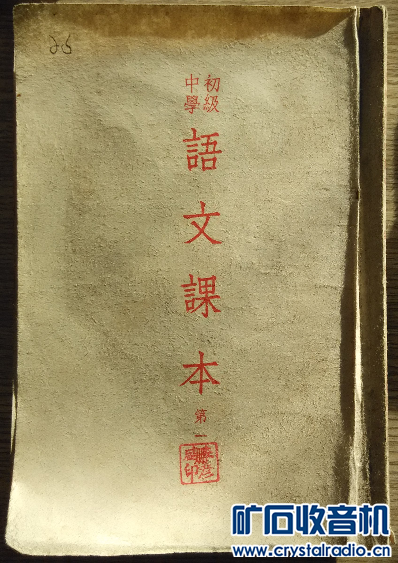 26
初級
中學
語文課本
第一
矿石收音机
www.crystalradio.cn